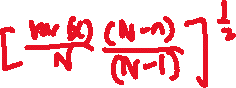 [ var(x) / N (N-n) / (N-1) ]^1/2